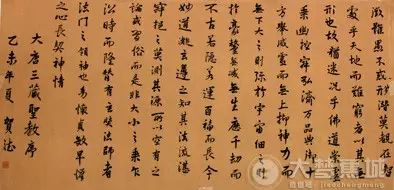 徵雖愚不惑形潛莫覩在智
處乎天地而難窮者以其無
形也故猶迷況乎佛道崇虛
乘幽控寂弘濟萬品典御十
方舉威靈而無上抑神力而
無下大之則彌於宇宙細之則
攝於毫釐無滅無生歷千劫而
不古若隱若顯運百福而長今
妙道凝玄遵之知其法流湛
寂挹之莫測其源所以空有之
論或習俗而是非大小之乘乍
沿時而隆替有玄奘法師者
法門之領袖也幼懷貞敏早悟
之心長契神情
大唐三藏聖教序
乙未年夏
大梦焦城